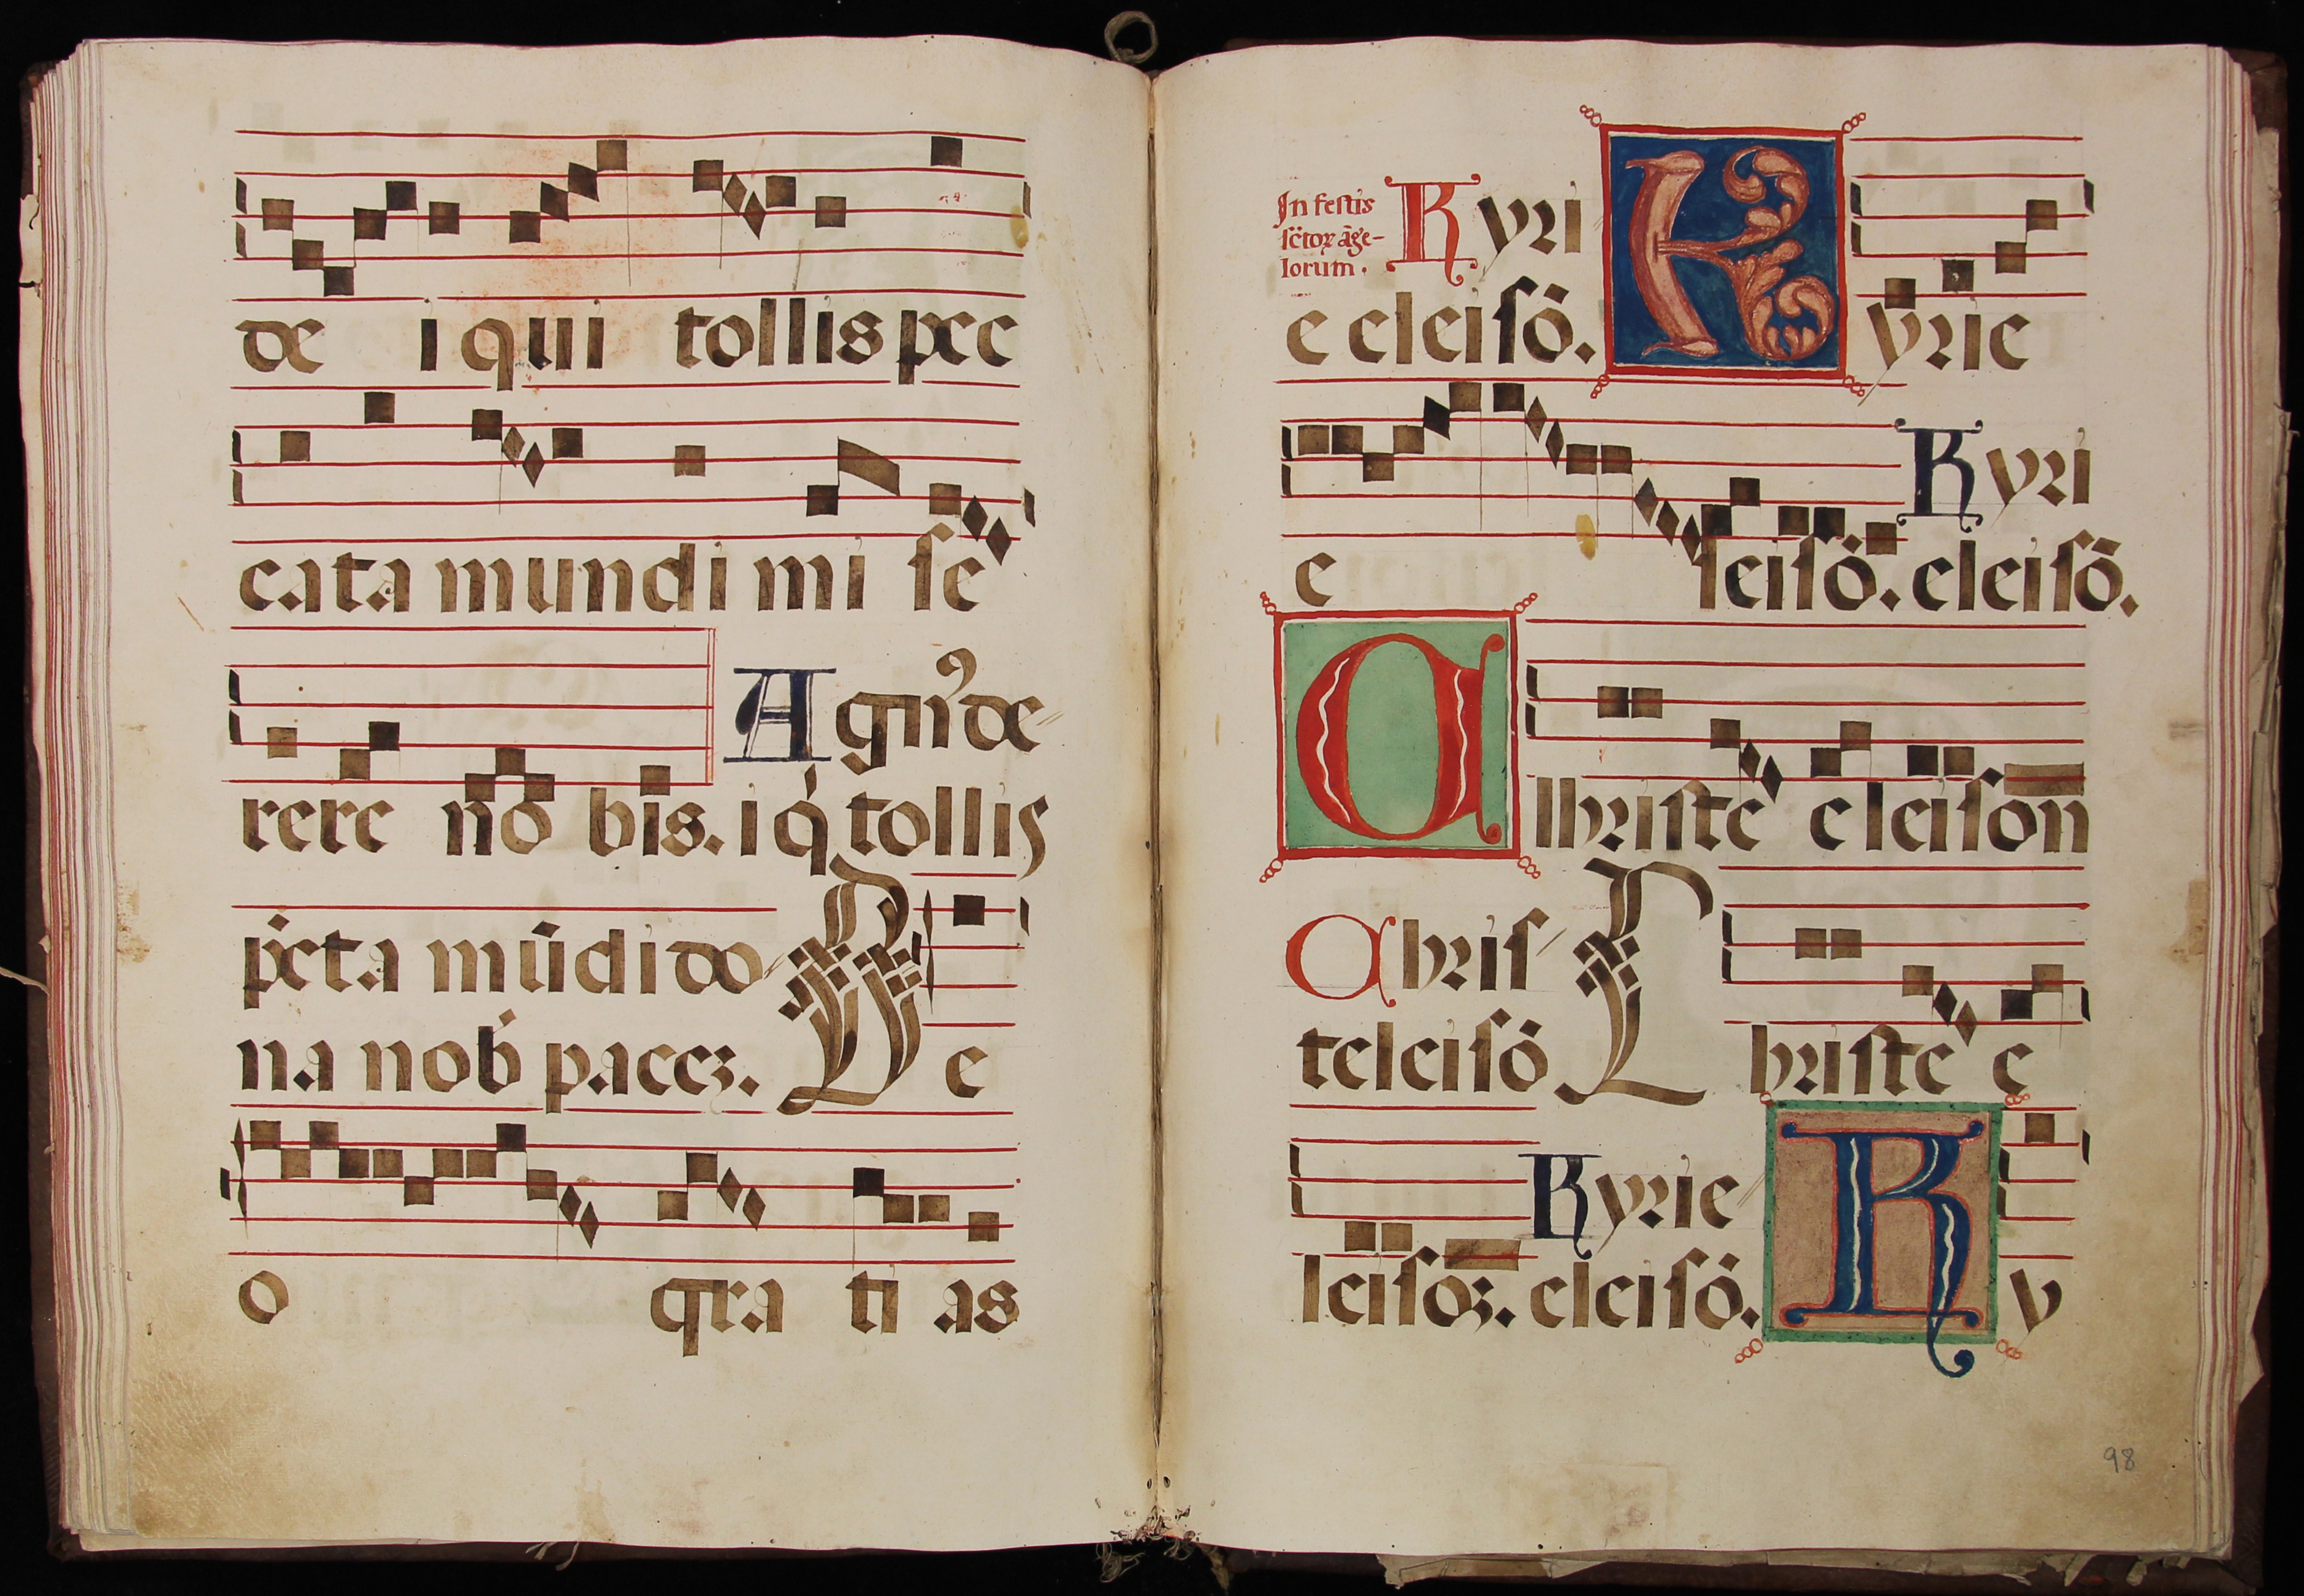 de i qui tollis pec
cata mundi mi se
Agnꝰ de⸗
rere no bis. i q̇ tollis
pc̄ta mūdi do⸗
na nob̛ pacez. De
o gra ti as
In festis
sc̄toꝝ āge-
lorum.
Kyri
e eleisō. Kyrie
Kyri
e leisō. eleisō.
Christe eleison
Chris⸗
teleisō Christe e
Kyrie⸗
leisoz. eleisō. Ky
98